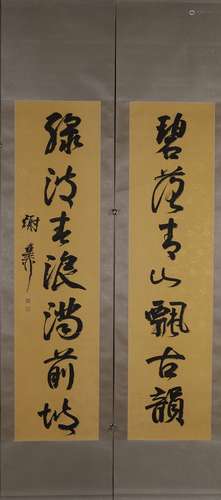 碧落青山飄古韻
綠波春浪滿前坡
謝無量